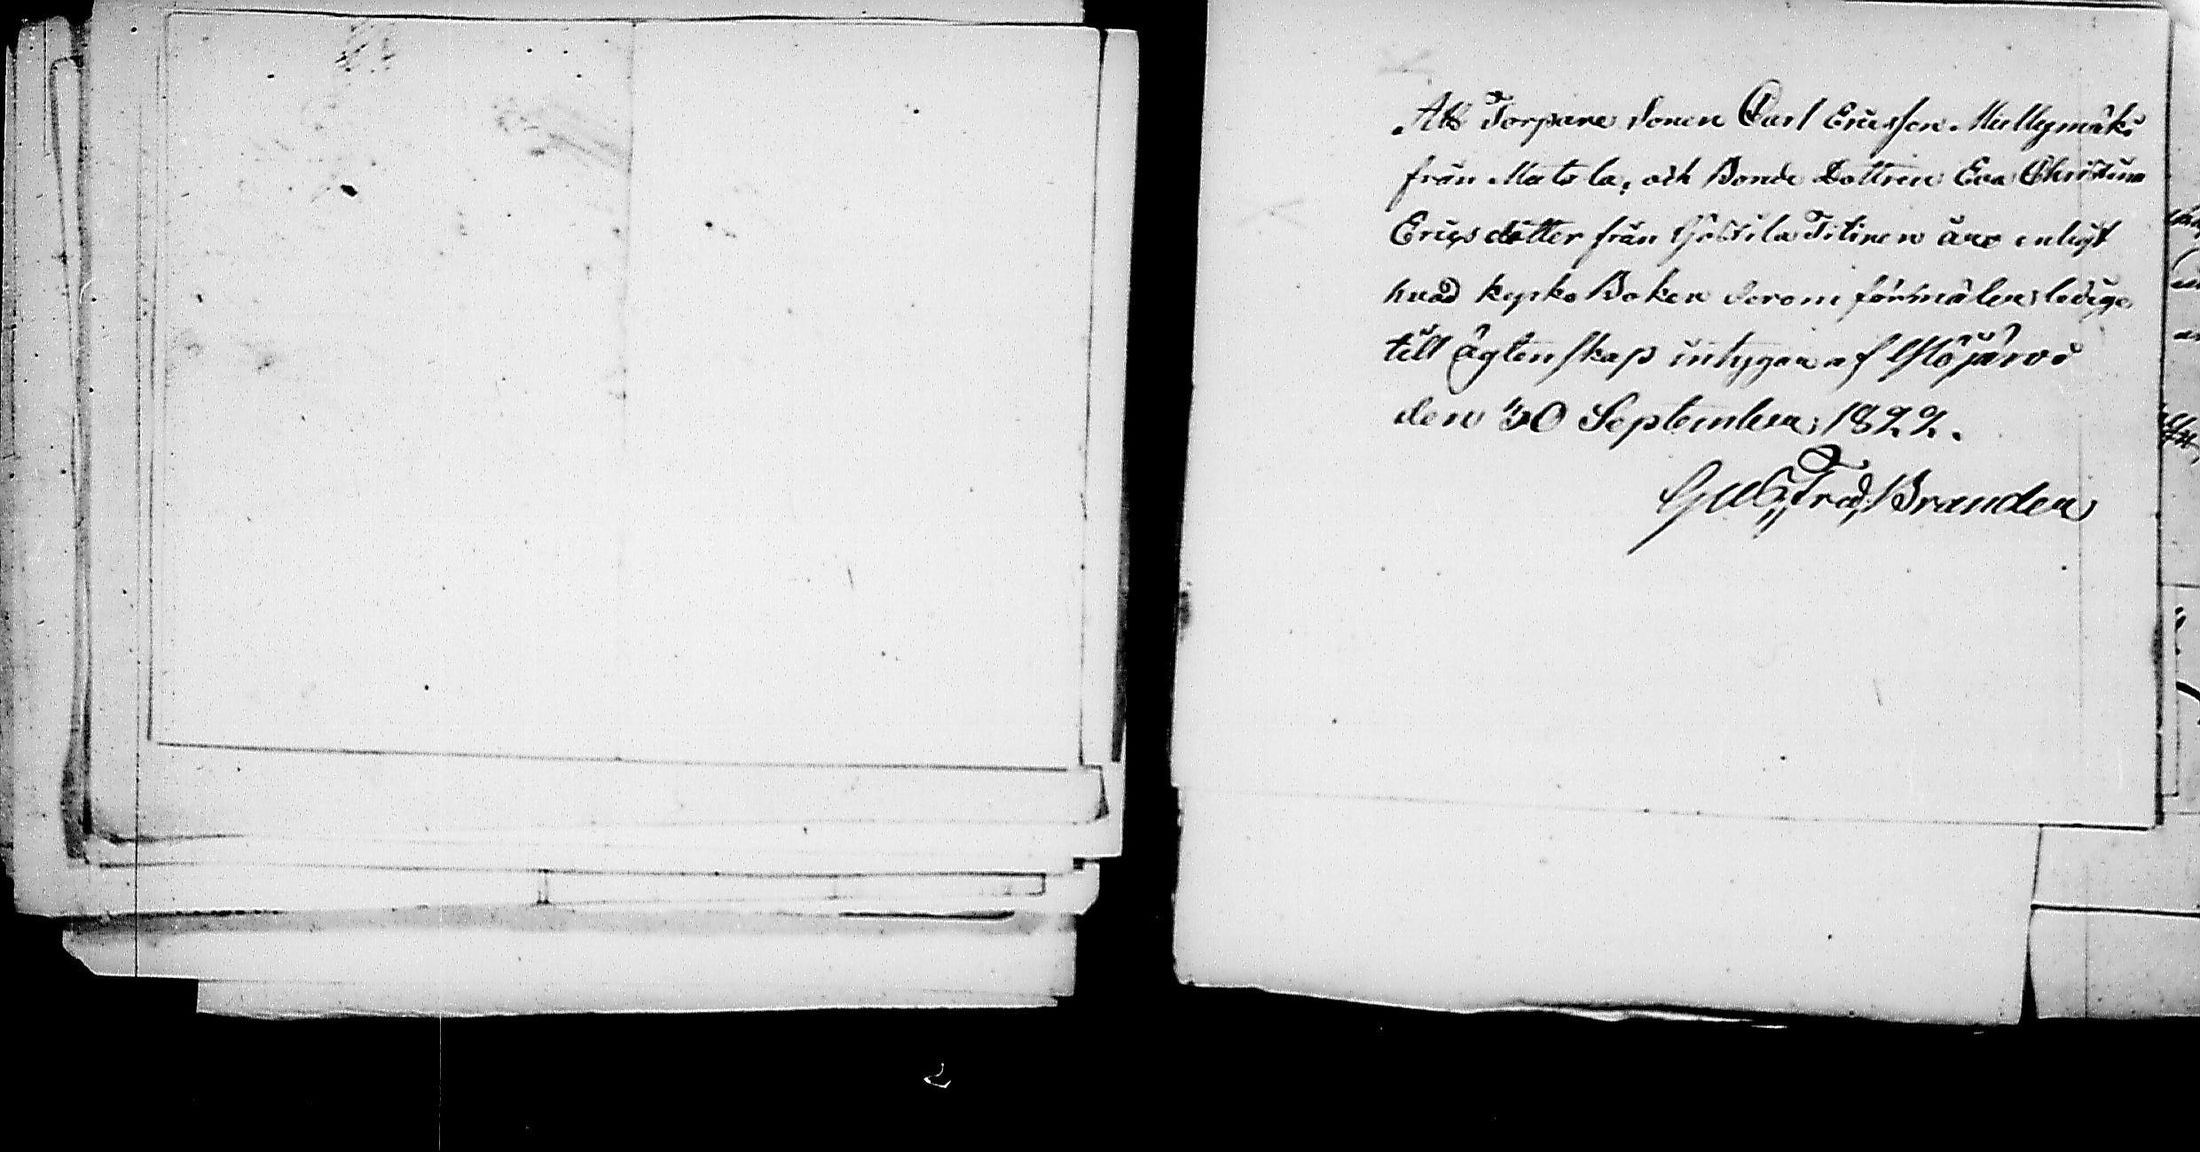 Att Torpare Sonen Carl Ericsson Myllymäki
från Matsla, och Bonde Dottren Eva Christina
Ericsdotter från Titinen äro enligt
hvad kyrko Boken derom förmäler ledige
till ägtenskap intygar af Ylöjärvi
den 30 September 1822.
Gust, Fred, Brander
2